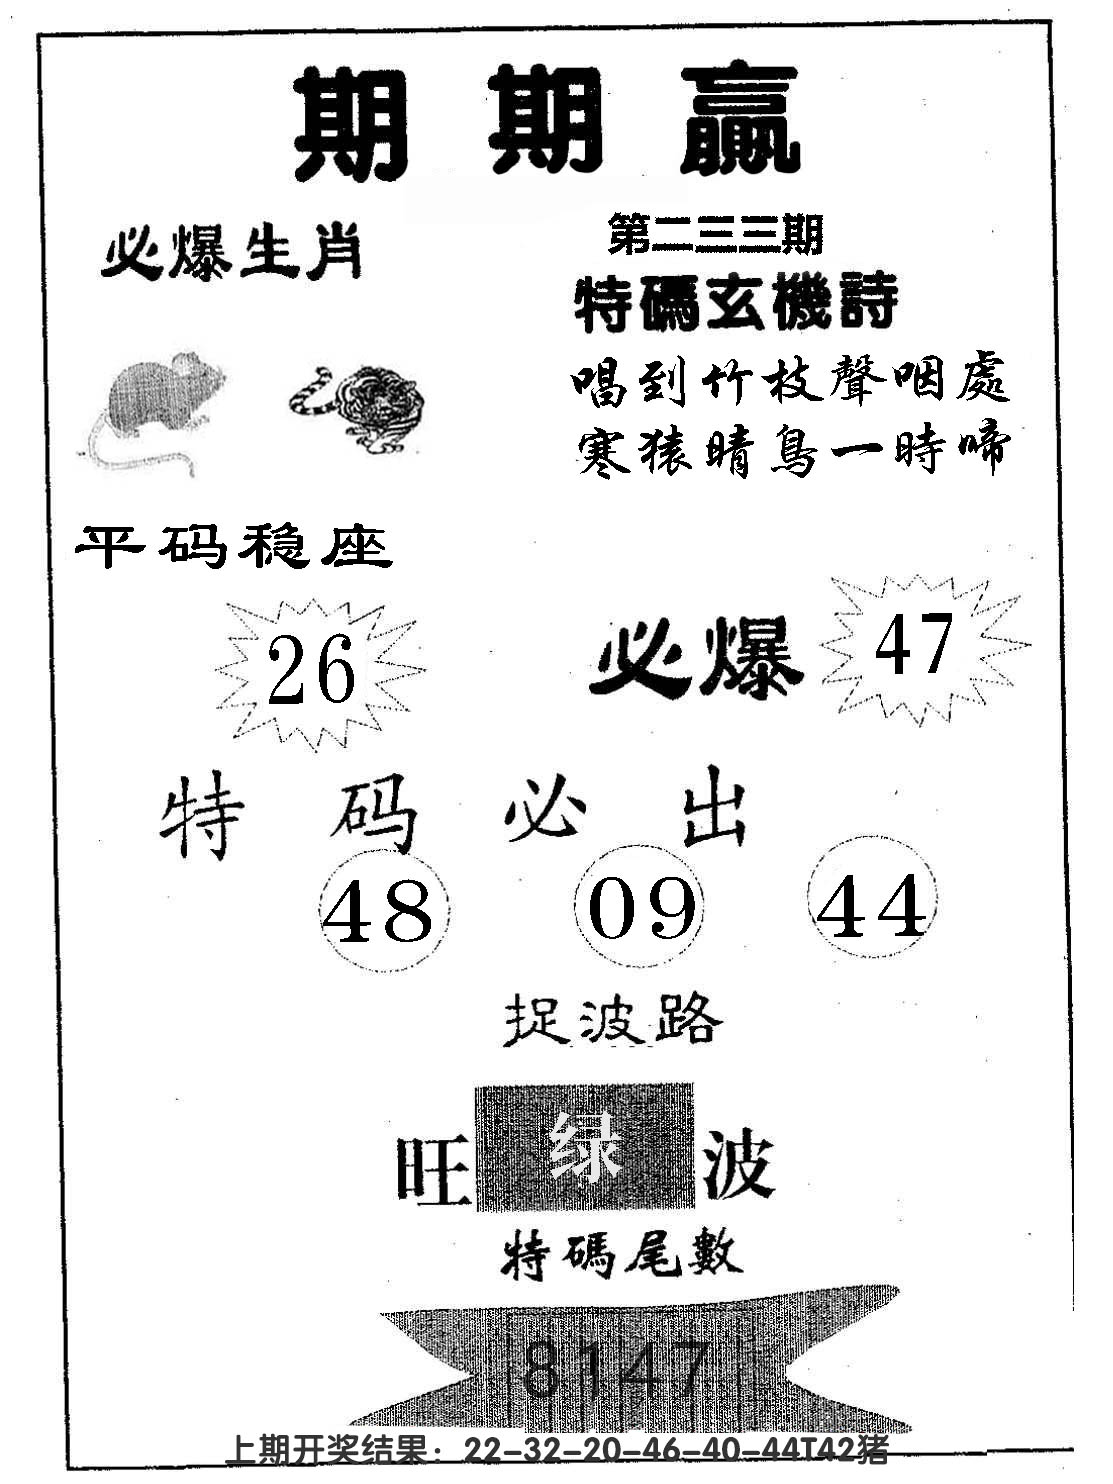 期期赢
必爆生肖
第二三三期
特碼玄機詩
唱到竹枝聲咽處
寒猿晴鳥一時啼
平码稳座
26
必爆
47
特码必出
48 09 44
捉波路
旺绿波
特碼尾數
8147
上期开奖结果：22-32-20-46-40-44T42猪